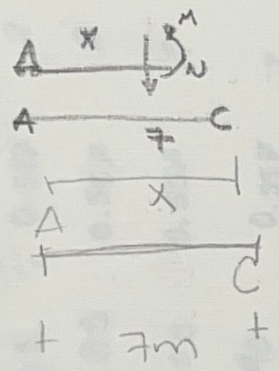 A x M
N
A C
7
x
A
C
+ 7m +